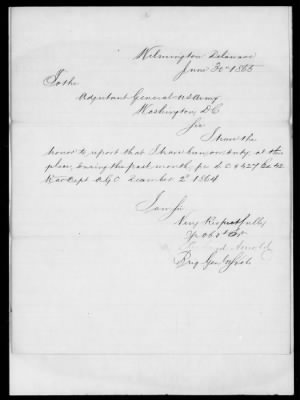 Wilmington Delaware
June 30th 1865
To the
Adjutant General U S Army
Washington, D C
Sir
I have the
honor to report that I have been on duty at this
place, during the past month, per
War Dept A G O December 2d 1864
I am Sir
Very Respectfully
Yr Obdt Svt
Arnold
Brig Genl Vols